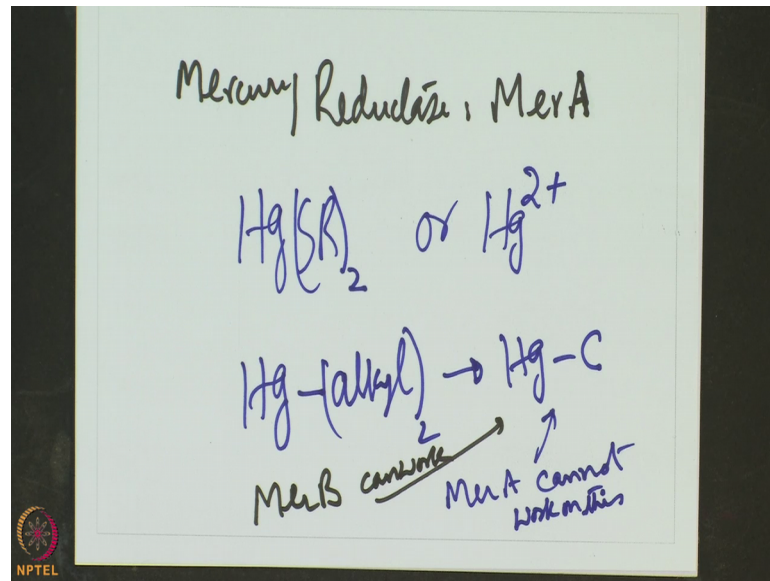 Mercury Reductase, MerA
Hg(SR)2 or Hg2+
Hg-(alkyl)2 → Hg-C
MerB can work
MerA cannot
work on this
NPTEL